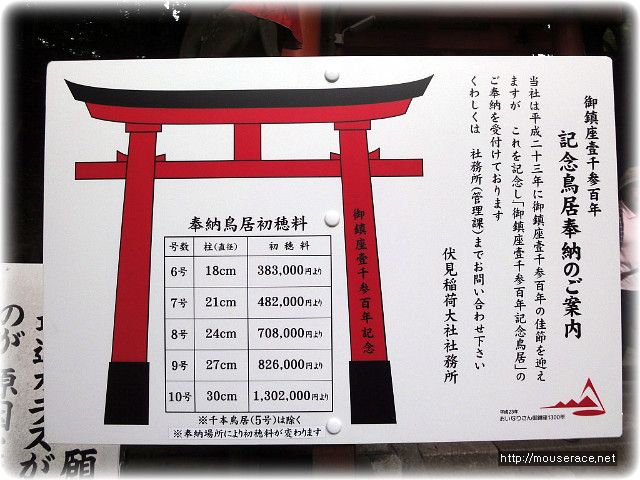 御鎮座壹千参百年
記念鳥居奉納のご案内
当社は平成二十三年に御鎮座壹千参百年の佳節を迎え
ますが これを記念し「御鎮座壹千参百年記念鳥居」の
ご奉納を受付けております
くわしくは 社務所(管理課)までお問い合わせ下さい
伏見稲荷大社社務所
御鎮座壹千参百年記念
奉納鳥居初穂料
号数 柱(直径) 初穂料
6号 18cm 383,000円より
7号 21cm 482,000円より
8号 24cm 708,000円より
9号 27cm 826,000円より
10号 30cm 1,302,000円より
※千本鳥居(5号)は除く
※奉納場所により初穂料が変わります
平成23年
おいなりさん御鎮座1300年
願
http://mouserace.net